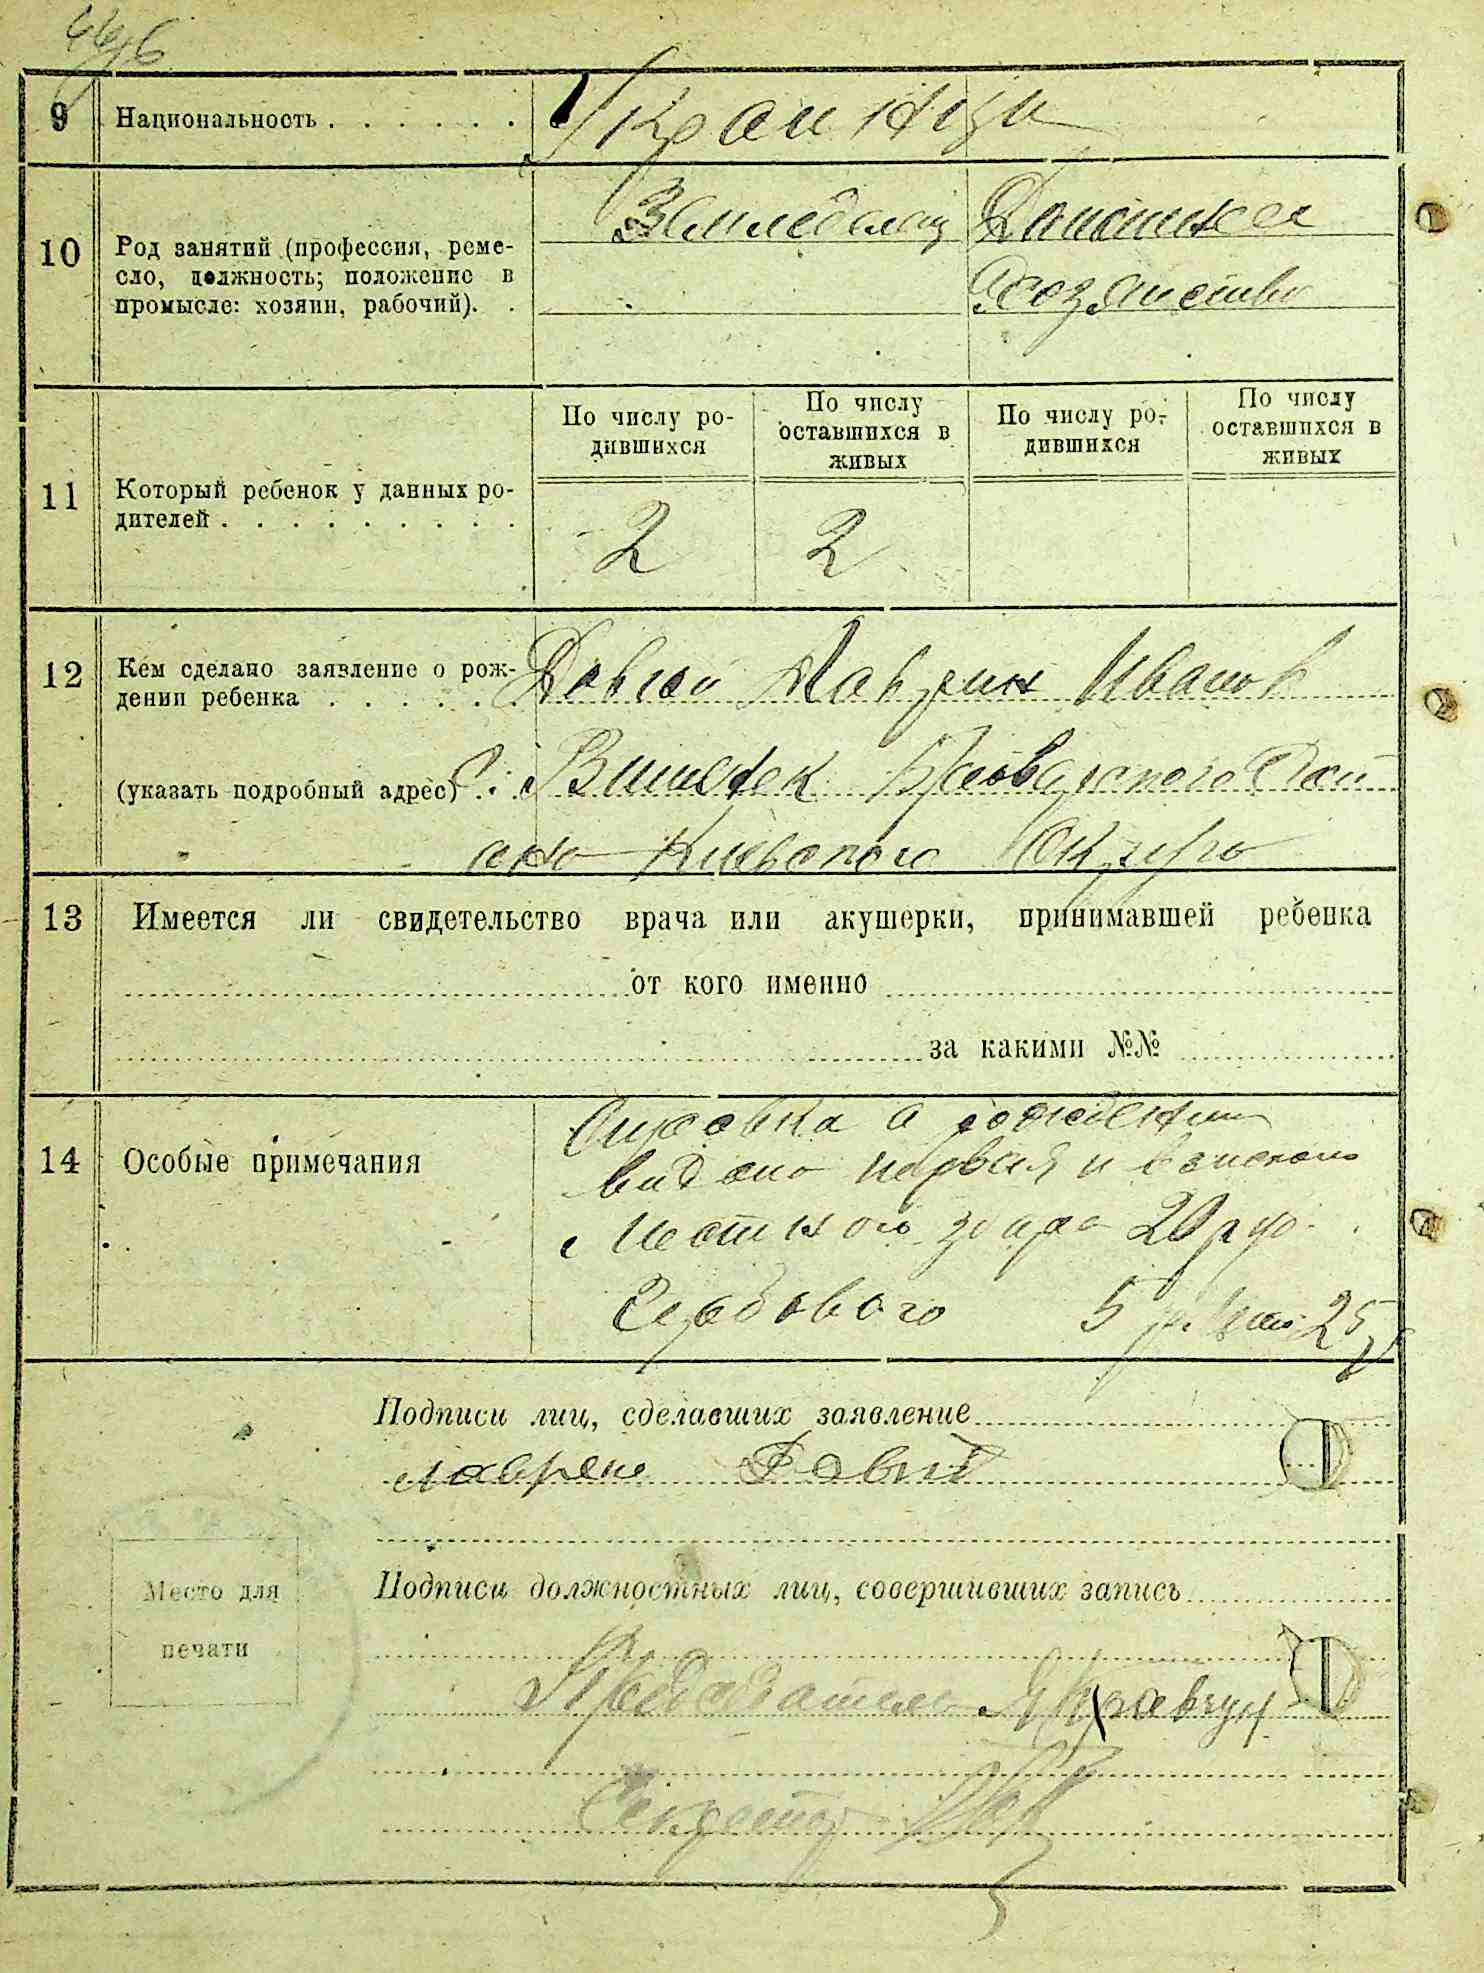 9 Национальность . . . . . . Українци
10 Род занятий (профессия, реме-
сло, должность; положение в
промысле: хозяин, рабочий). .
Земледелец
Домашнее
Хозяиство
По числу ро-
дившихся
По числу
оставшихся в
живых
По числу ро-
дившихся
По числу
оставшихся в
живых
11 Который ребенок у данных ро-
дителей . . . . . . . . .
2 2
12 Кем сделано заявление о рож-
дении ребенка . . . . . . Довгой Лаврин Иванов
(указать подробный адрес) . . с. Виш Броварского Рай
она Киевского Округа
13 Имеется ли свидетельство врача или акушерки, принимавшей ребенка
от кого именно
за какими №№
14 Особые примечания
о рождении
видано первая и взискано
Местного 20 руб.
Гербового 5 р. 25
Подписи лиц, сделавших заявление
Лаврен Довгий
Место для
печати
Подписи должностных лиц, совершивших запись
Председатель Кравчун
Секретар